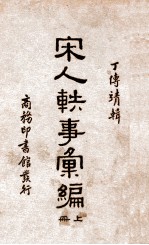 丁傅靖輯
宋人軼事彙編
上冊
商務印書館發行